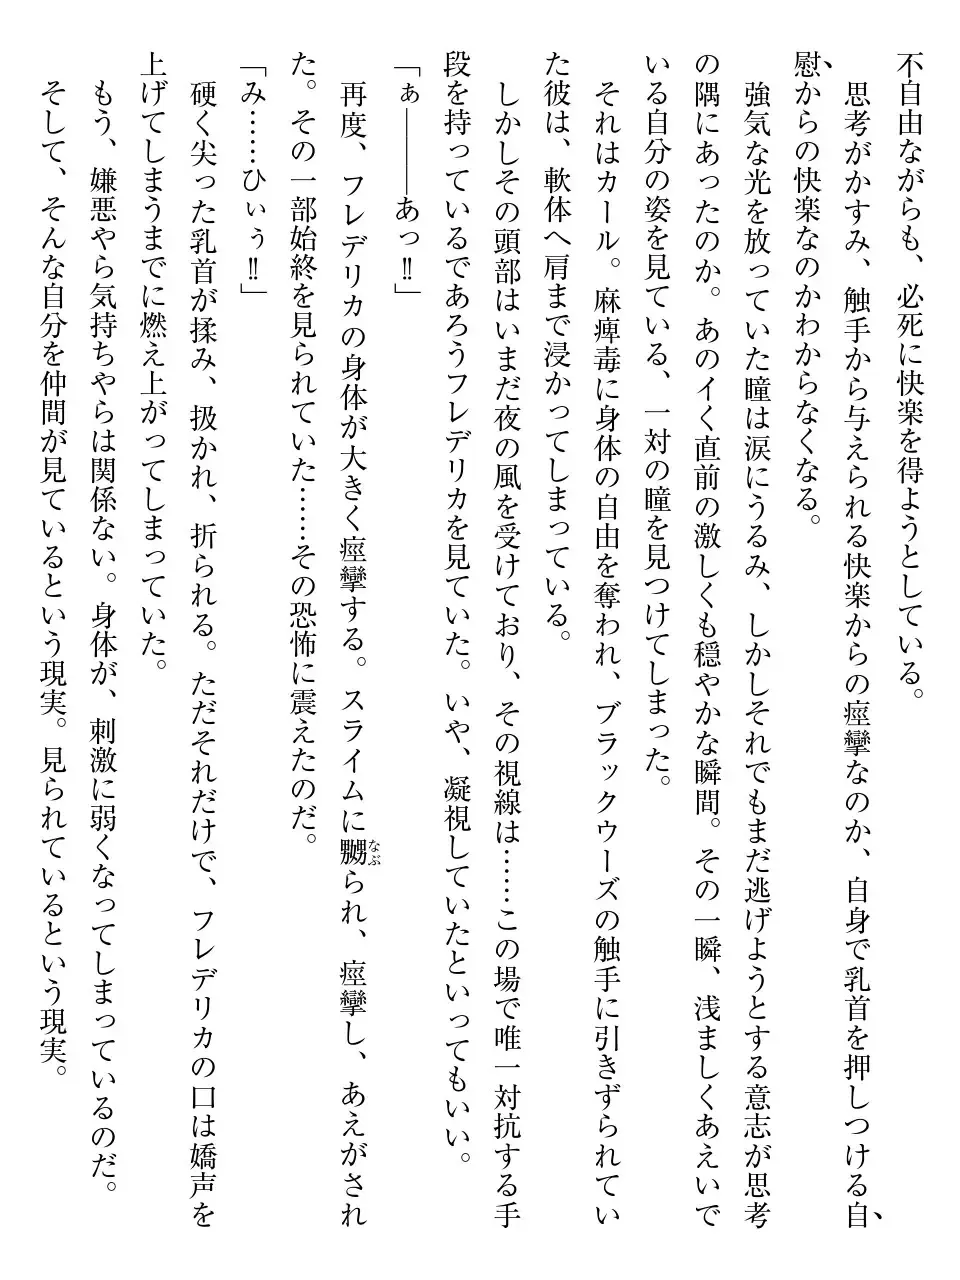 不自由ながらも、必死に快楽を得ようとしている。
思考がかすみ、触手から与えられる快楽からの痙攣なのか、自身で乳首を押しつける自
慰からの快楽なのかわからなくなる。
強気な光を放っていた瞳は涙にうるみ、しかしそれでもまだ逃げようとする意志が思考
の隅にあったのか。あのイく直前の激しくも穏やかな瞬間。その一瞬、浅ましくあえいで
いる自分の姿を見ている、一対の瞳を見つけてしまった。
それはカール。麻痺毒に身体の自由を奪われ、ブラックウーズの触手に引きずられてい
た彼は、軟体へ肩まで浸かってしまっている。
しかしその頭部はいまだ夜の風を受けており、その視線は……この場で唯一対抗する手
段を持っているであろうフレデリカを見ていた。いや、凝視していたといってもいい。
「ぁ――――あっ‼」
再度、フレデリカの身体が大きく痙攣する。スライムに嬲られ、痙攣し、あえがされ
なぶ
た。その一部始終を見られていた……その恐怖に震えたのだ。
「み……ひぃぅ‼」
硬く尖った乳首が揉み、扱かれ、折られる。ただそれだけで、フレデリカの口は嬌声を
上げてしまうまでに燃え上がってしまっていた。
もう、嫌悪やら気持ちやらは関係ない。身体が、刺激に弱くなってしまっているのだ。
そして、そんな自分を仲間が見ているという現実。見られているという現実。